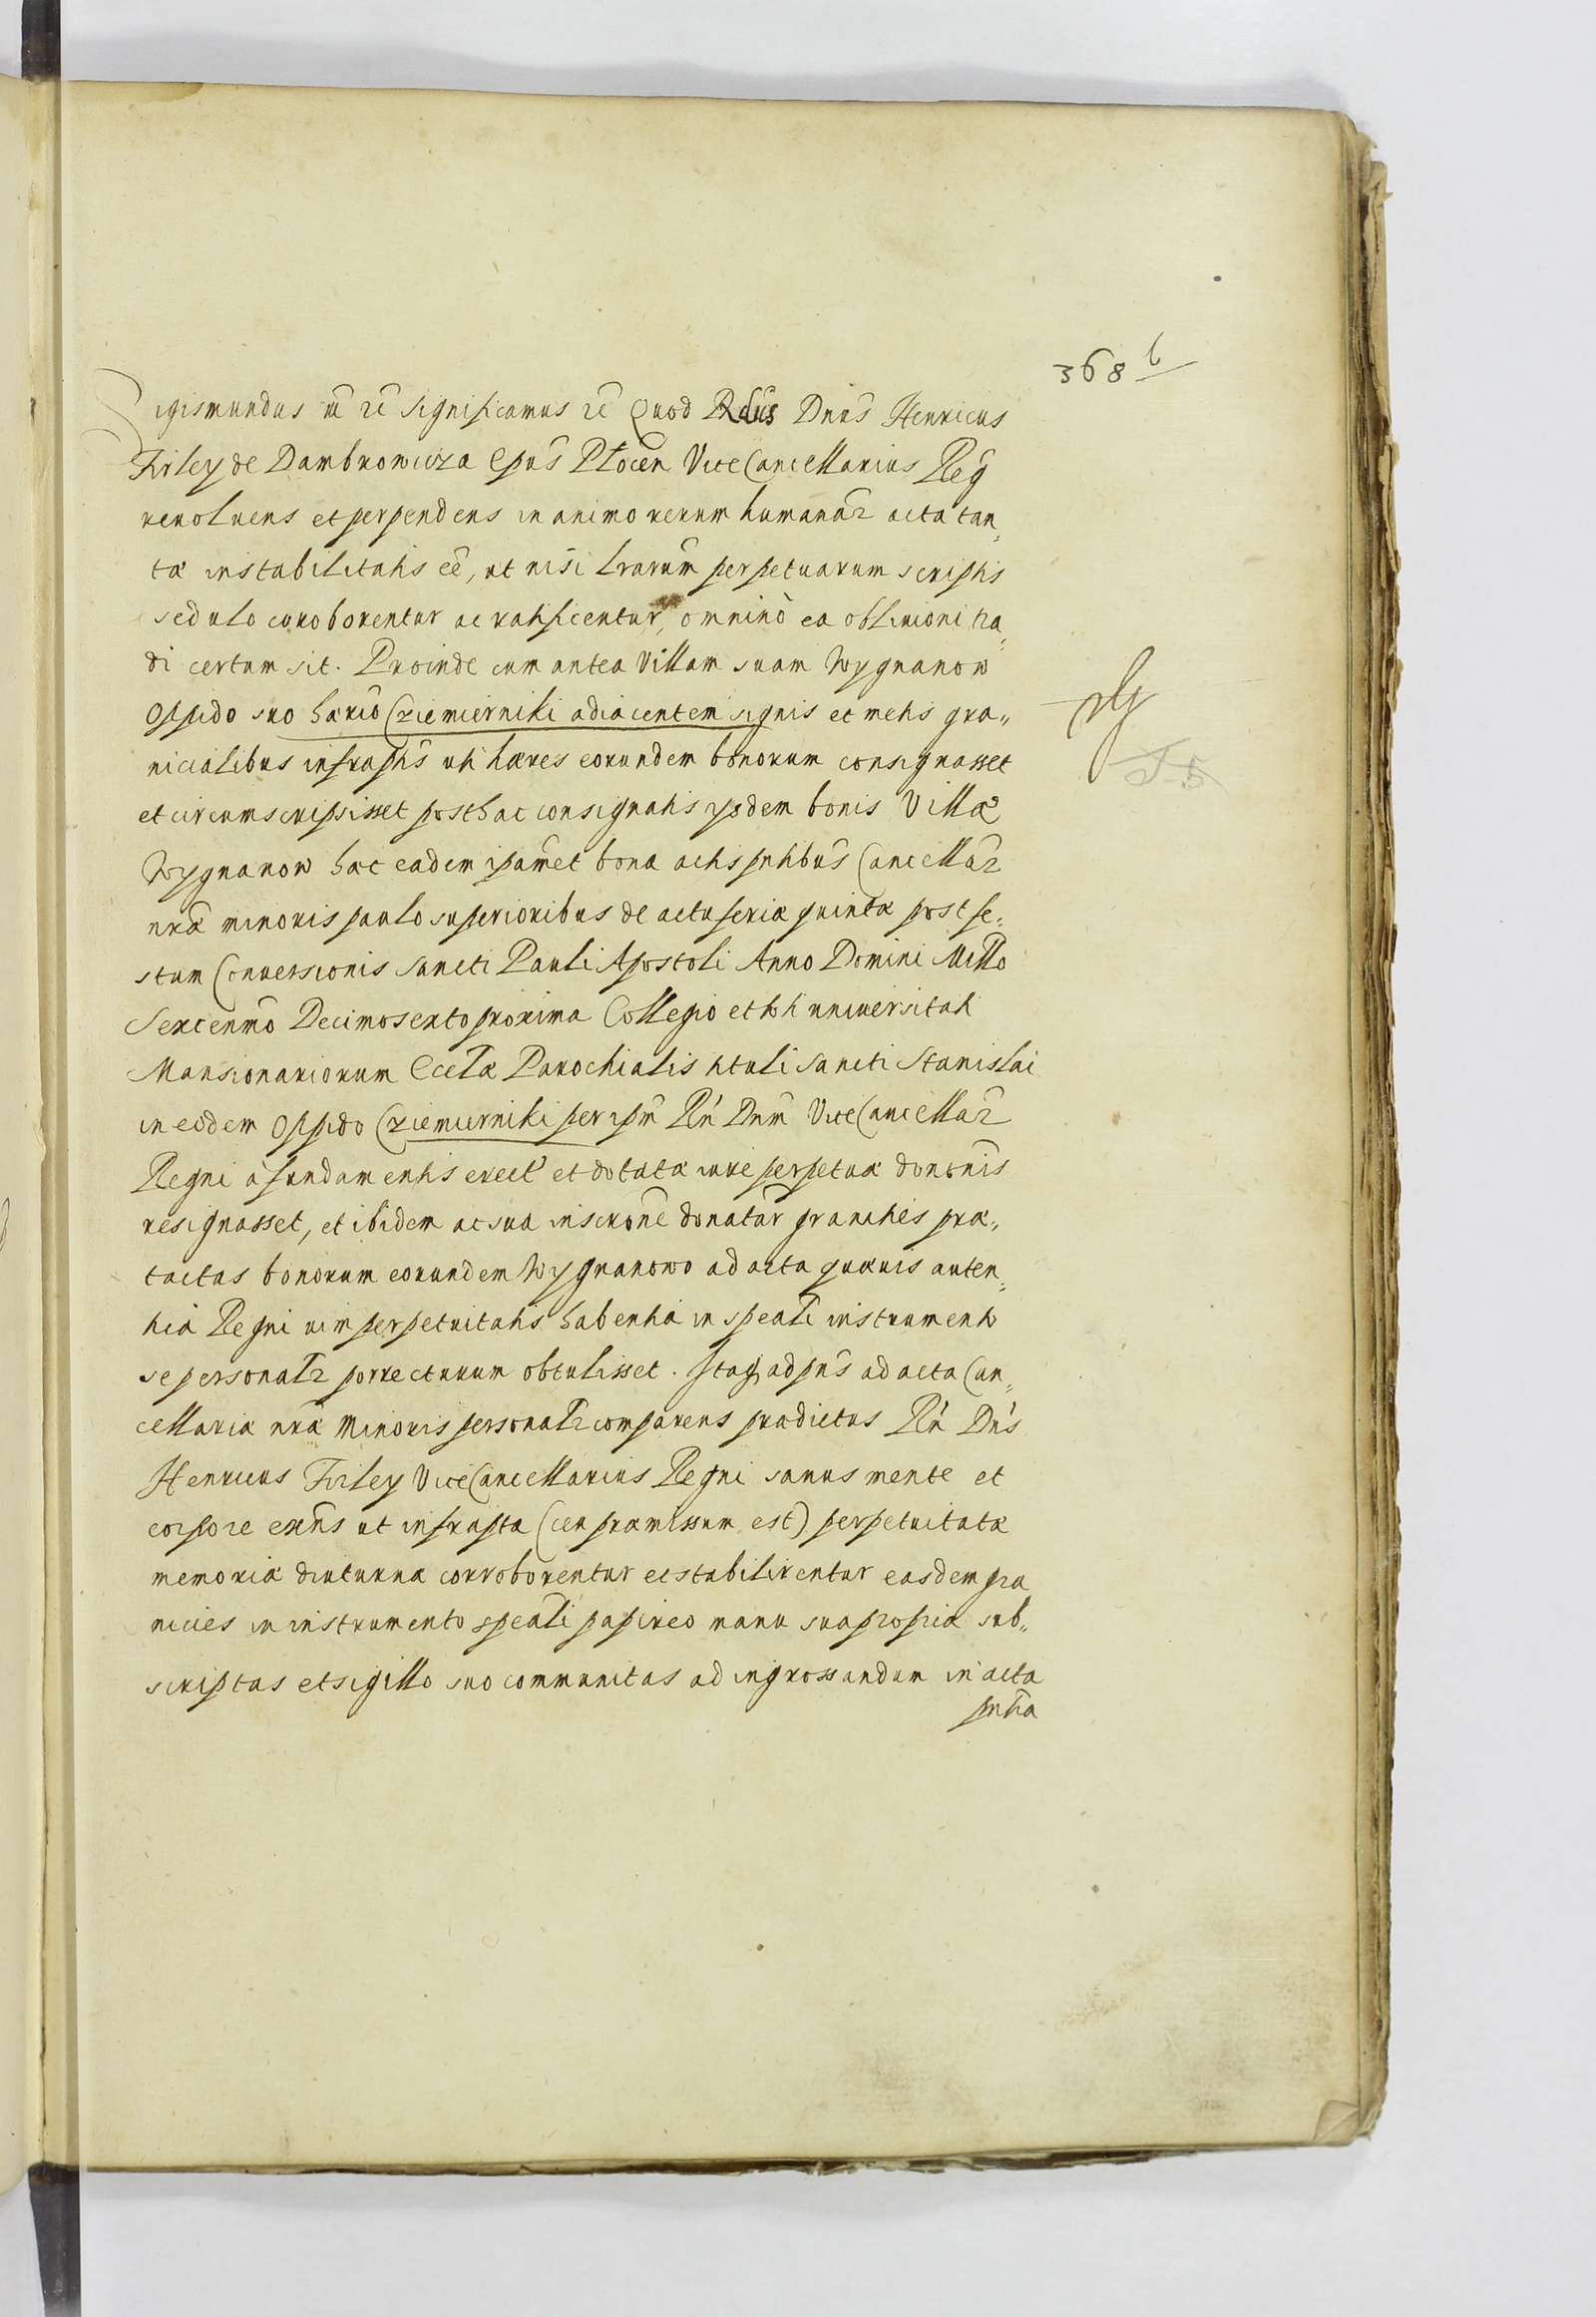 368 b
Sigismundus etc etc Significamus etc Quod Rdus Dnus Henricus
Firley de Dambrowicza Epus Plocen ViceCancellarius Reg
revoluens et perpendens in animo rerum humanar acta tan„
tæ instabilitatis eē, ut nisi lrarum perpetuarum scriptis
sedulo corroborentur ac ratificentur, omninò ea obliuioni tra„
di certum sit. Proinde cum antea Villam suam Wygnanow
Oppido suo hærio Cziemierniki adiacentem signis et metis gra„
nicialibus infraptis uti hæres eorundem bonorum consignasset
et circumscripsisset posthac consignatis ysdem bonis Villæ
Wygnanow hæc eadem ipamet bona actis pntibus Cancellar
nræ minoris paulo superioribus de actu feria quinta post fe„
stum Conuersionis Sancti Pauli Apostoli Anno Domini Millo
Sexcenmo Decimosexto proxima Collegio et toti uniuersitati
Mansionariorum Ecclæ Parochialis tituli Sancti Stanislai
in eodem Oppido Cziemierniki per ipm Rn Dnm ViceCancellar
Regni à fundamentis erect et dotatæ iure perpetuæ dononis
resignasset, et ibidem ac sua inscrone donatar granities præ„
tactas bonorum eorundem Wygnanowo ad acta quæuis auten„
tica Regni uim perpetuitatis habentia in speali instrumento
se personalr porrecturum obtulisset. Itaq ad pns ad acta Can„
cellariæ nræ Minoris personalr comparens prædictus Rn Dns
Henricus Firley ViceCancellarius Regni sanus mente et
corpore exns ut infrapta (ceu præmissum est) perpetuitatæ
memoriæ diuturnæ corroborentur et stabilirentur easdem gra
nicies in instrumento speali papireo manu sua propria sub„
scriptas et sigillo suo communitas ad ingrossandum in acta
pntia